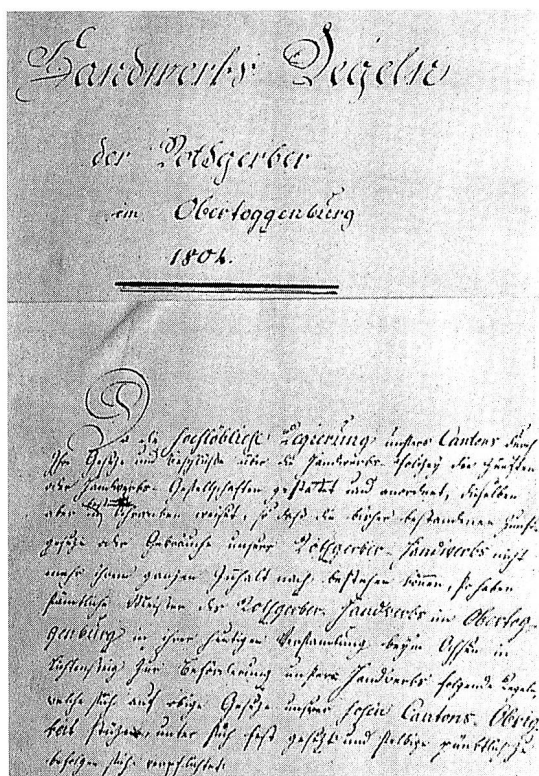 Handwerks Regeln
der Rothgerber
im Obertoggenburg
1804.
Da die hochlöbliche Regierung unsers Cantons durch
Ihre Gesetze und Beschlüsse über die Handwerks-Polizey den Zünften
oder Handwerks-Gesellschaften gestatet und anordnet, dieselben
aber in Schranken weiset, so daß die bisher bestandenen Zunft-
gesetze oder Gebräuche unsers Rothgerber-Handwerks nicht
mehr ihrem ganzen Inhalt nach bestehen können, so haben
sämtliche Meister des Rothgerber-Handwerks im Obertog-
genburg in ihrer heutigen Versamlung beym Ochsen in
zur Beförderung unsers Handwerks folgende Regeln,
welche sich auf obige Gesetze unsrer hohen Cantons-Obrig-
keit stüzen, unter sich fest gesetzt und selbige pünktlich zu
befolgen sich verpflichtet.